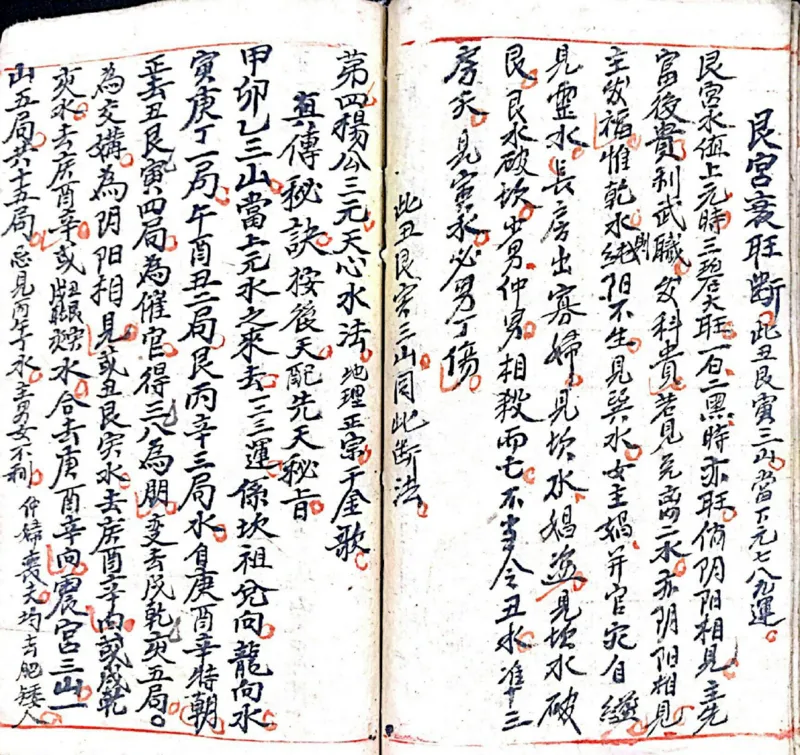 艮宮衰旺断 此丑艮寅三山當下元七八九運
艮宮水值上元時三碧大旺一白二黑時亦旺俏阴阳相見主先
富後貴利武職发科貴若見兌离二水亦阴阳相見
主发福惟乾水純阳不生見巽水女主媧并官灾自縊
見震水長房出寡婦見坎水娼盗見坎水破
艮艮水破坎少男仲男相殺而亡不當令丑水准十三
房夭見寅水必男丁傷
此丑艮寅三山同此断法
第四楊公三元天心水法 地理正宗千金歌
真傳秘訣按後天配先天秘旨
甲卯乙三山當上元水之來去一二三運係坎祖兌向龍向水
寅庚丁一局午酉丑二局艮丙辛三局水自庚酉辛特朝
正去丑艮寅四局為催官得三八為朋变去戌乾亥五局
為交媾為阴阳相見或丑艮寅水去庚酉辛向或戌乾
亥水去庚酉辛或丑艮寅戌乾亥水合去庚酉辛向震宮三山一
山五局共十五局忌見丙午丁水主男女不利 仲婦喪夫均去肥矮人